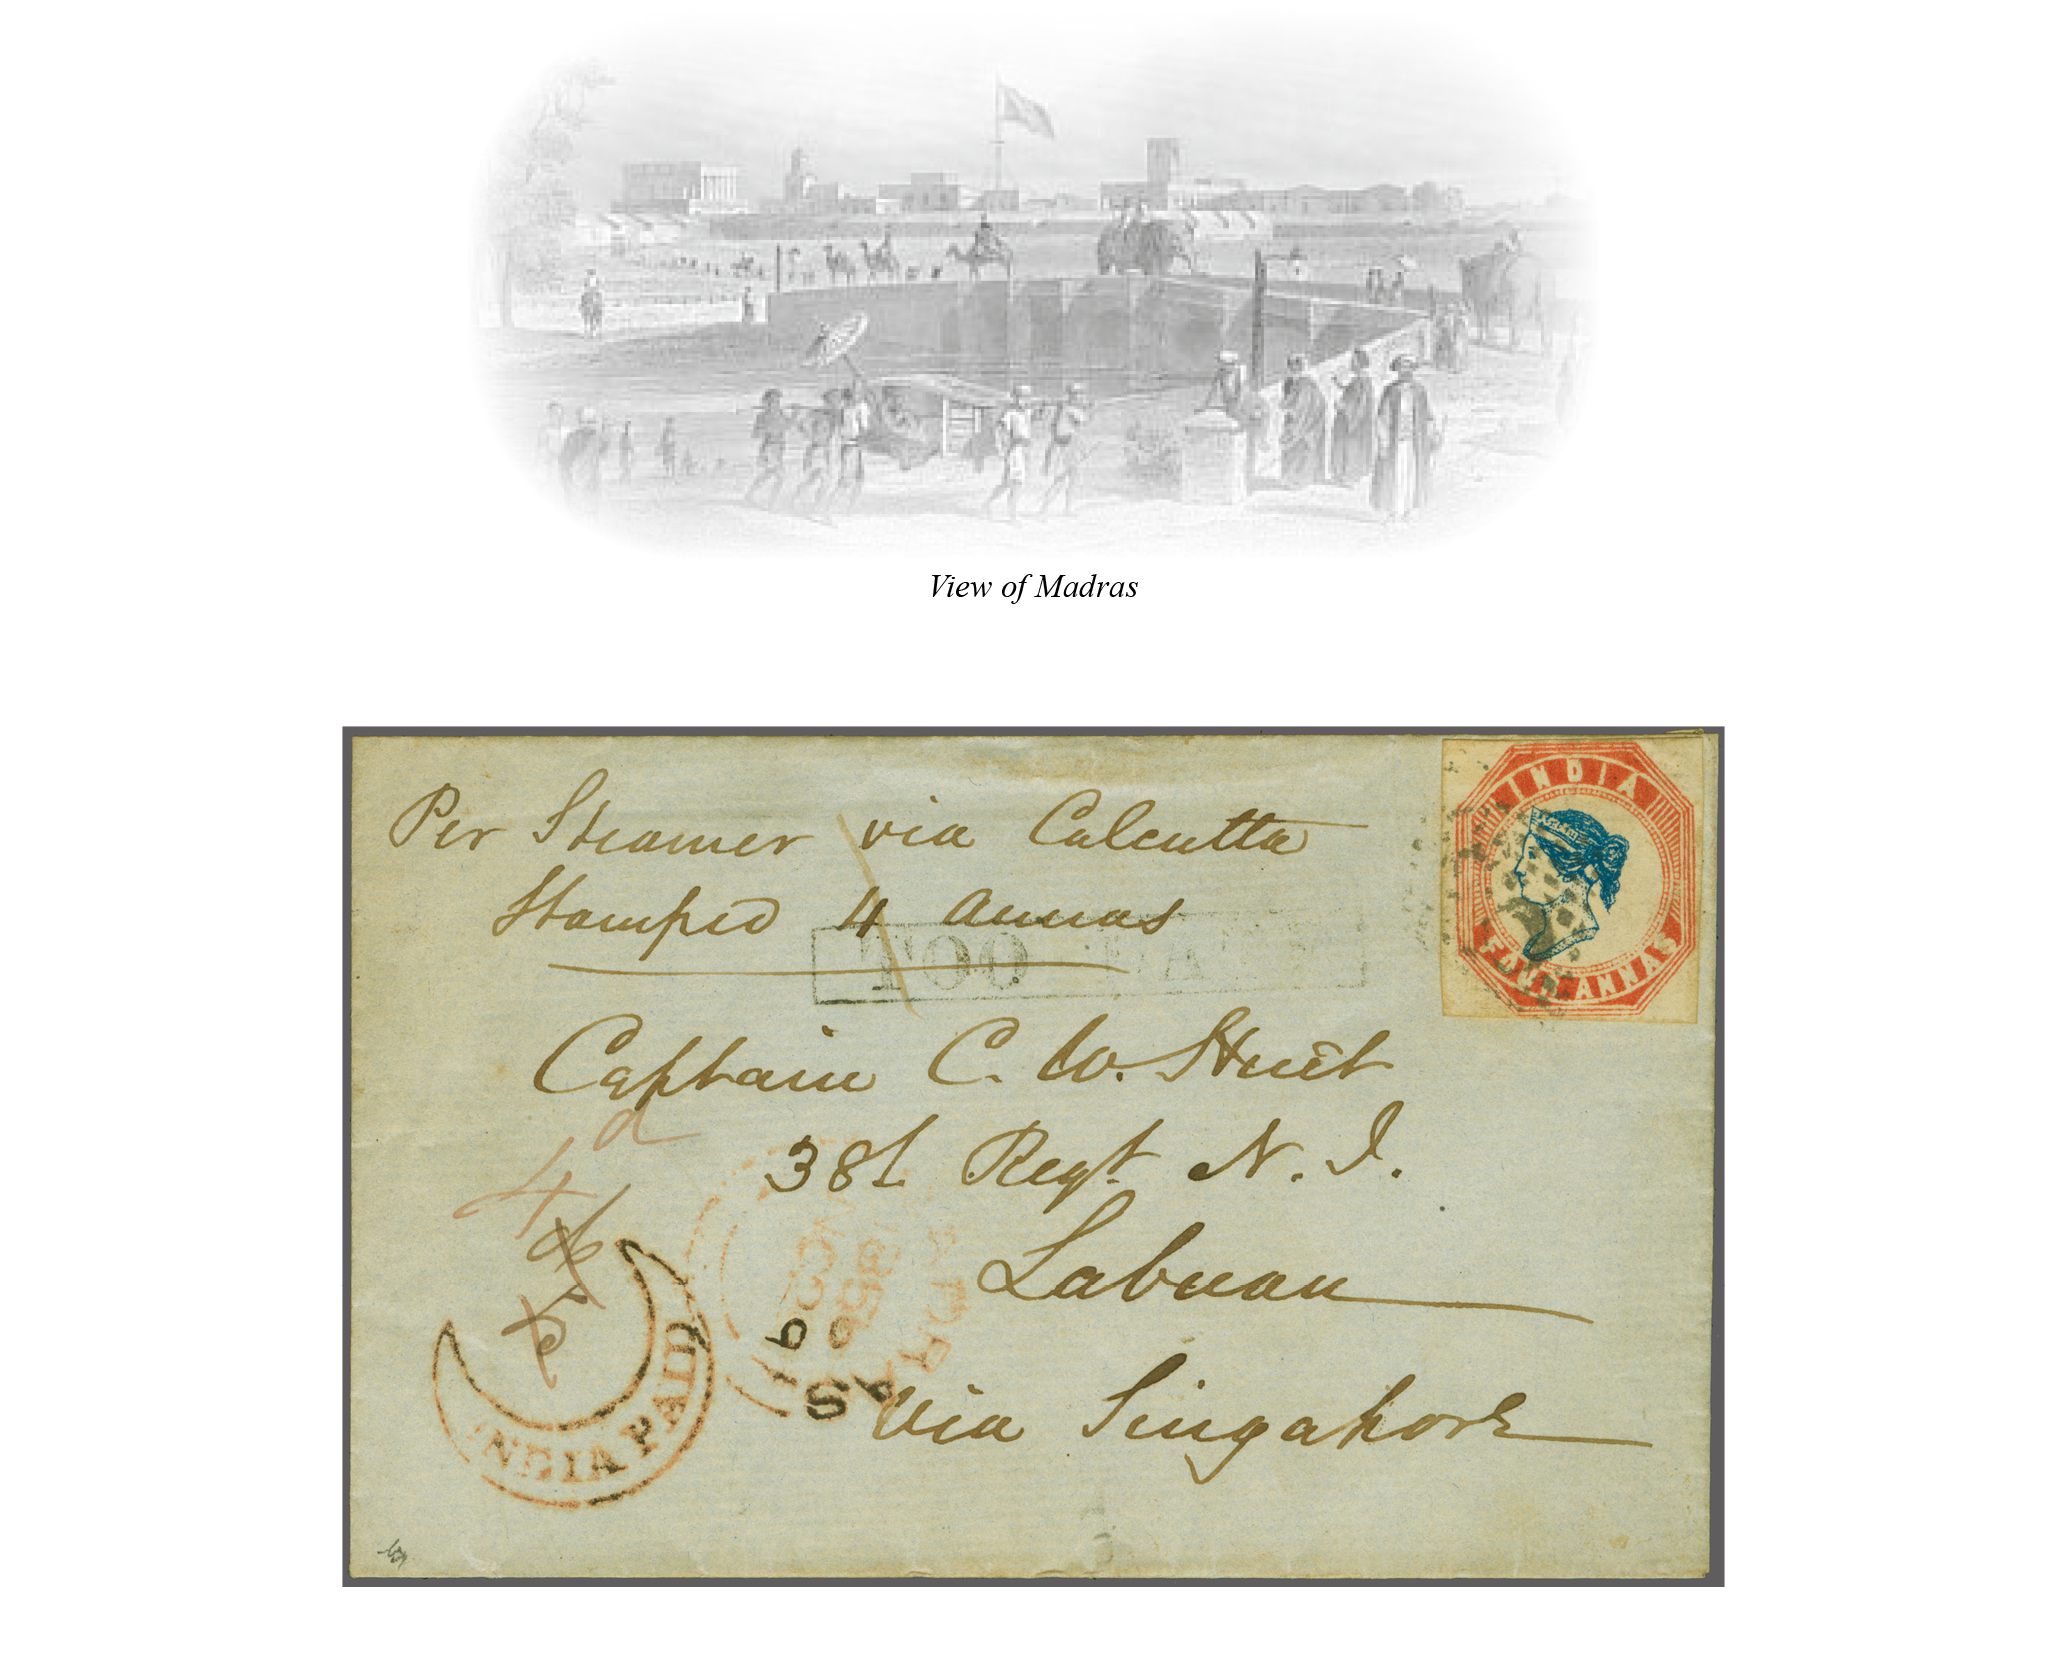 View of Madras
Per Steamer via Calcutta
Stamped 4 Annas
TOO LATE
INDIA
FOUR ANNAS
Captain C. W. Stuit
38t Regt. N. I.
Labuan
via Singapore
4d
INDIA PAID
MADRAS